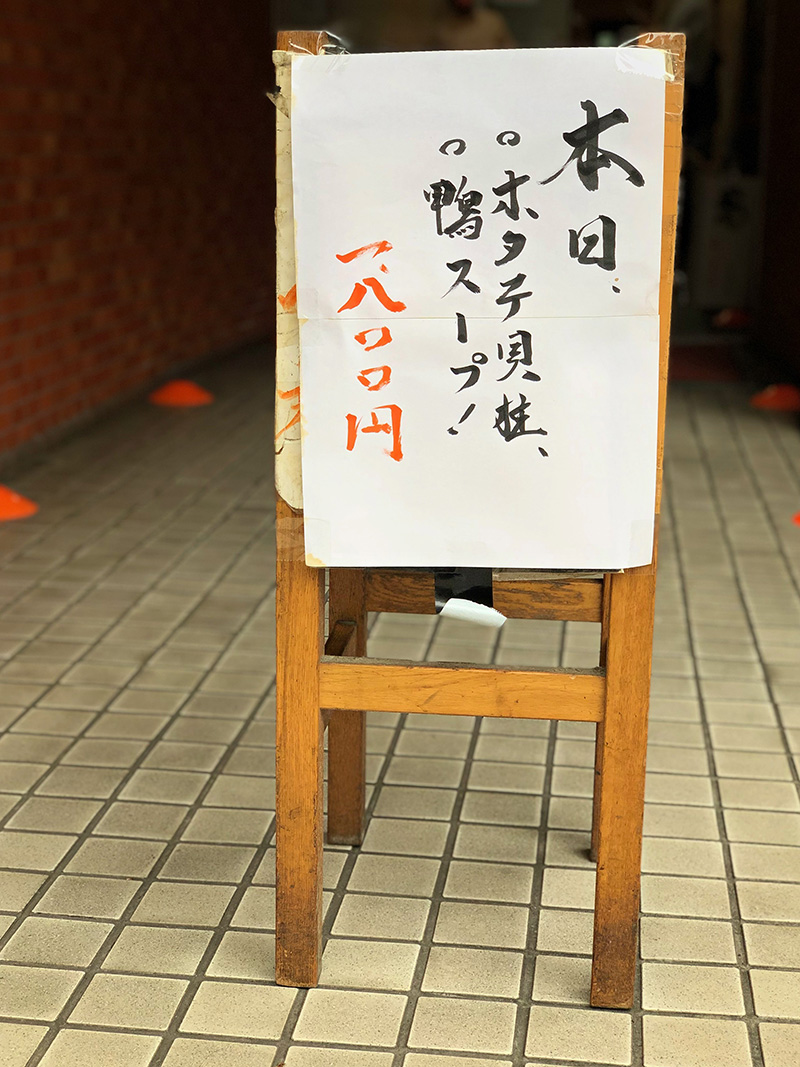 本日、
。ホタテ貝柱、
。鴨スープ!
一、八〇〇円